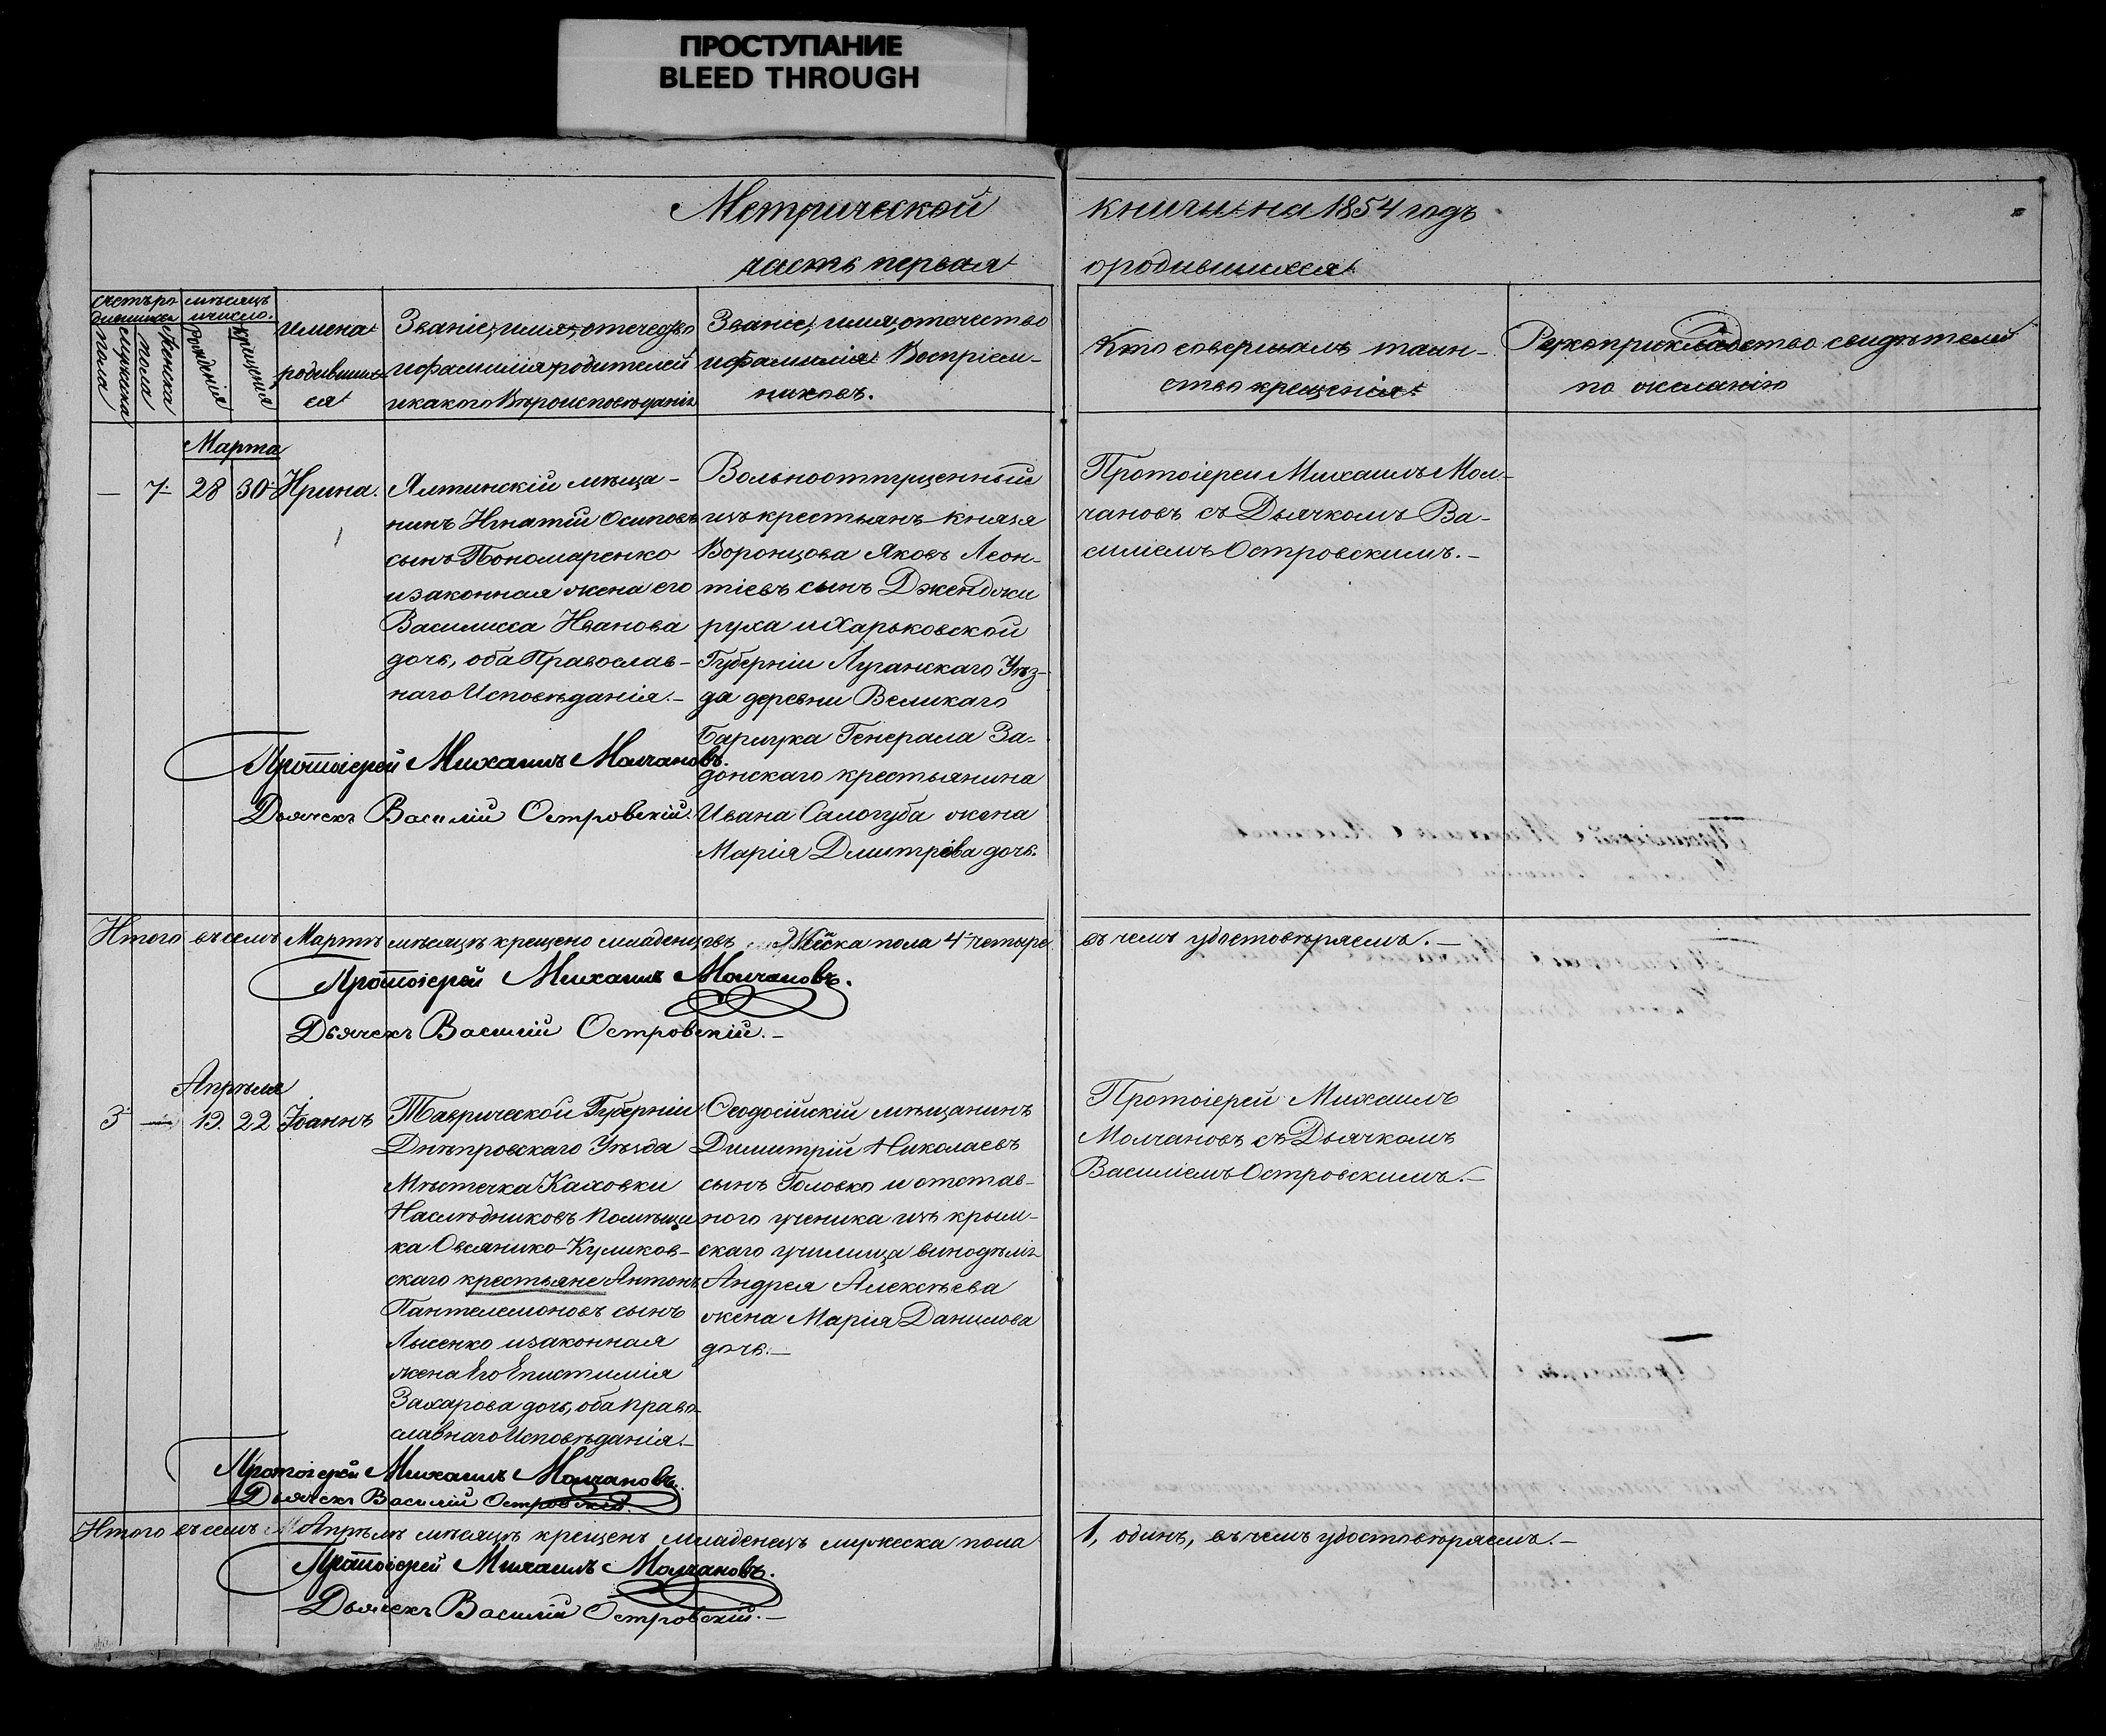 ПРОСТУПАНИЕ
BLEED THROUGH
Метрической книги на 1854 годъ
часть первая о родившихся
счетъ ро мѣсяцъ
дившихся и число.
мужеска пола
женска пола
рожденія
крещенія
имена
родивших
ся
Званіе, имя, отечество
и фамилія родителей
и какого Вѣроисповѣданія
Званіе, имя, отечество
и фамилія Воспріем-
никовъ.
Кто совершалъ таин-
ство крещенія
Рукоприкладство свидѣтелей
по желанію
Марта
— 7. 28 30. Ирина.
Ялтинскій мѣща-
нинъ Игнатій Осиповъ
сынъ Пономаренко
и законная жена его
Василисса Иванова
дочь, оба Православ-
наго Исповѣданія.—
Вольноотпущенный
изъ крестьянъ князя
Воронцова Яковъ Леон-
тіевъ сынъ Дженджи
руха и Харьковской
Губерніи Луганскаго Уѣз-
да деревни Великаго
Генерала За-
донскаго крестьянина
Ивана Самогуба жена
Марія Дмитріева дочь.
Протоіерей Михаилъ Мол-
чановъ съ Дьячкомъ Ва-
силіемъ Островскимъ.—
Протоіерей Михаилъ Молчановъ.
Дьячекъ Василій Островскій.
Итого въ семъ Мартѣ мѣсяцѣ крещено младенцовъ Женска пола 4 четыре въ чемъ удостовѣряемъ.—
Протоіерей Михаилъ Молчановъ.
Дьячекъ Василій Островскій.—
Апрѣля
3 — 19. 22 Іоаннъ
Таврической Губерніи
Днѣпровскаго Уѣзда
Мѣстечка Каховки
Наслѣдниковъ помѣщи
ка Овсянико-Куликов-
скаго крестьяне Антонъ
Пантелемоновъ сынъ
Лысенко и законная
жена Его Епистимія
Захарова дочь, оба Право-
славнаго Исповѣданія.—
Ѳеодосійскій мѣщанинъ
Димитрій Николаевъ
сынъ Головко и отстав-
ного ученика изъ крым-
скаго училища винодѣлія
Андрея Алексѣева
жена Марія Данилова
дочь.—
Протоіерей Михаилъ
Молчановъ съ Дьячкомъ
Василіемъ Островскимъ.—
Протоіерей Михаилъ Молчановъ.
Дьячекъ Василій Островскій.
Итого въ семъ Апрѣлѣ мѣсяцѣ крещенъ младенецъ мужеска пола 1, одинъ, въ чемъ удостовѣряемъ.—
Протоіерей Михаилъ Молчановъ.
Дьячекъ Василій Островскій.—